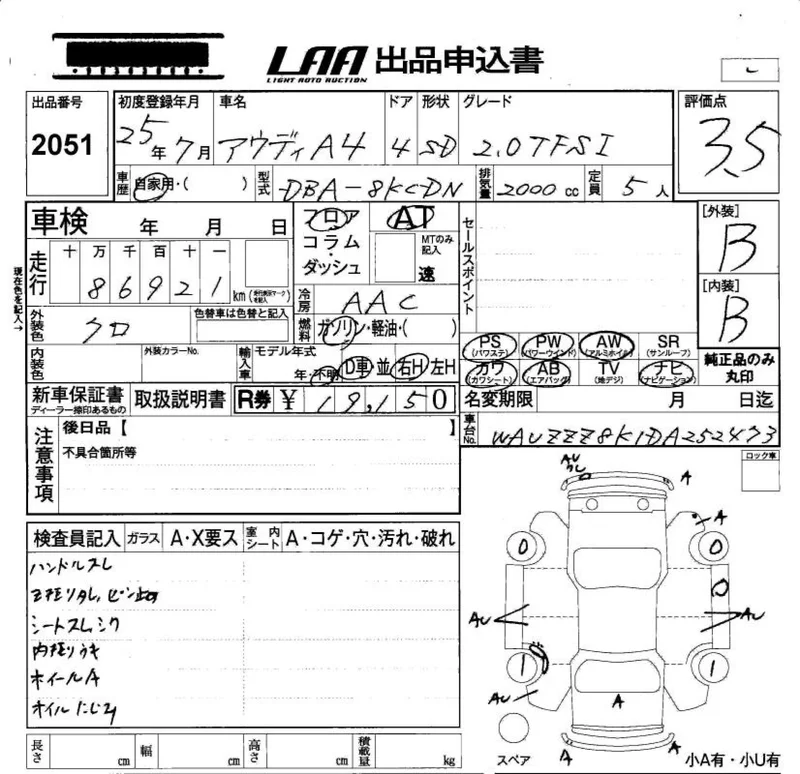 LAA 出品申込書
LIGHT AUTO AUCTION
出品番号 2051
初度登録年月 25年7月
車名 アウディA4
ドア 4
形状 SD
グレード 2.0TFSI
評価点 3.5
車歴 自家用・( )
型式 DBA-8KCDN
排気量 2000cc
定員 5人
車検 年 月 日
フロア コラム・ダッシュ
AT
MTのみ記入 速
セールスポイント
[外装] B
[内装] B
現在色を記入→
走行 十 万 千 百 十 一
8 6 9 2 1 km
冷房 AAC
燃料 ガソリン・軽油・( )
外装色 クロ
色替車は色替と記入
内装色
外装カラーNo.
輸入車 モデル年式 年・不明
D車・並 右H 左H
PS (パワステ) PW (パワーウインド) AW (アルミホイル) SR (サンルーフ)
カワ (カワシート) AB (エアバッグ) TV (地デジ) ナビ (ナビゲーション)
純正品のみ丸印
新車保証書 ディーラー捺印あるもの
取扱説明書
R券 ¥ 19,150
名変期限 月 日迄
車台No. WAUZZZ8K1DA252473
注意事項
後日品【 】
不具合箇所等
ロック車
検査員記入 ガラス A・X要ス 室内シート A・コゲ・穴・汚れ・破れ
ハンドルスレ
シートスレ、シワ
内張りウキ
ホイールA
オイルにじみ
AU A
A
0 0
AU AU
1 1
AU
A
A A
スペア
小A有・小U有
長さ cm 幅 cm 高さ cm 積載量 kg